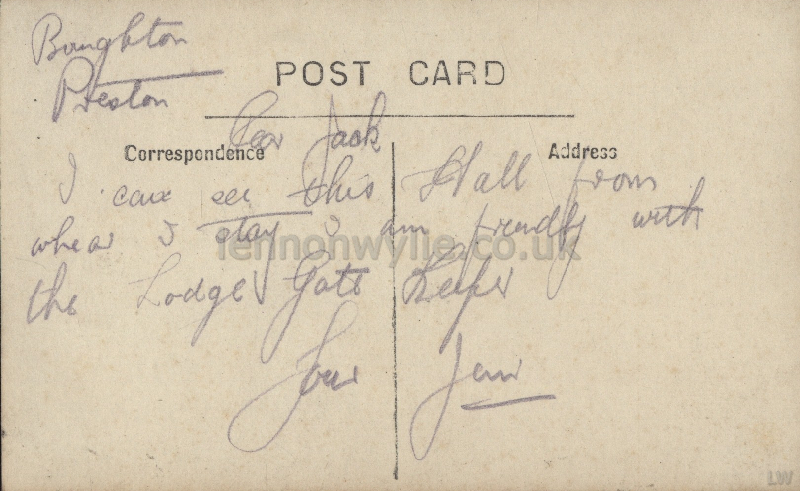 Boughton
Preston
POST CARD
Dear Jack
Correspondence
Address
I can see this Hall from
whear I stay I am frendly with
lennonwylie.co.uk
the Lodge Gate Keeper
Your Jim
LW